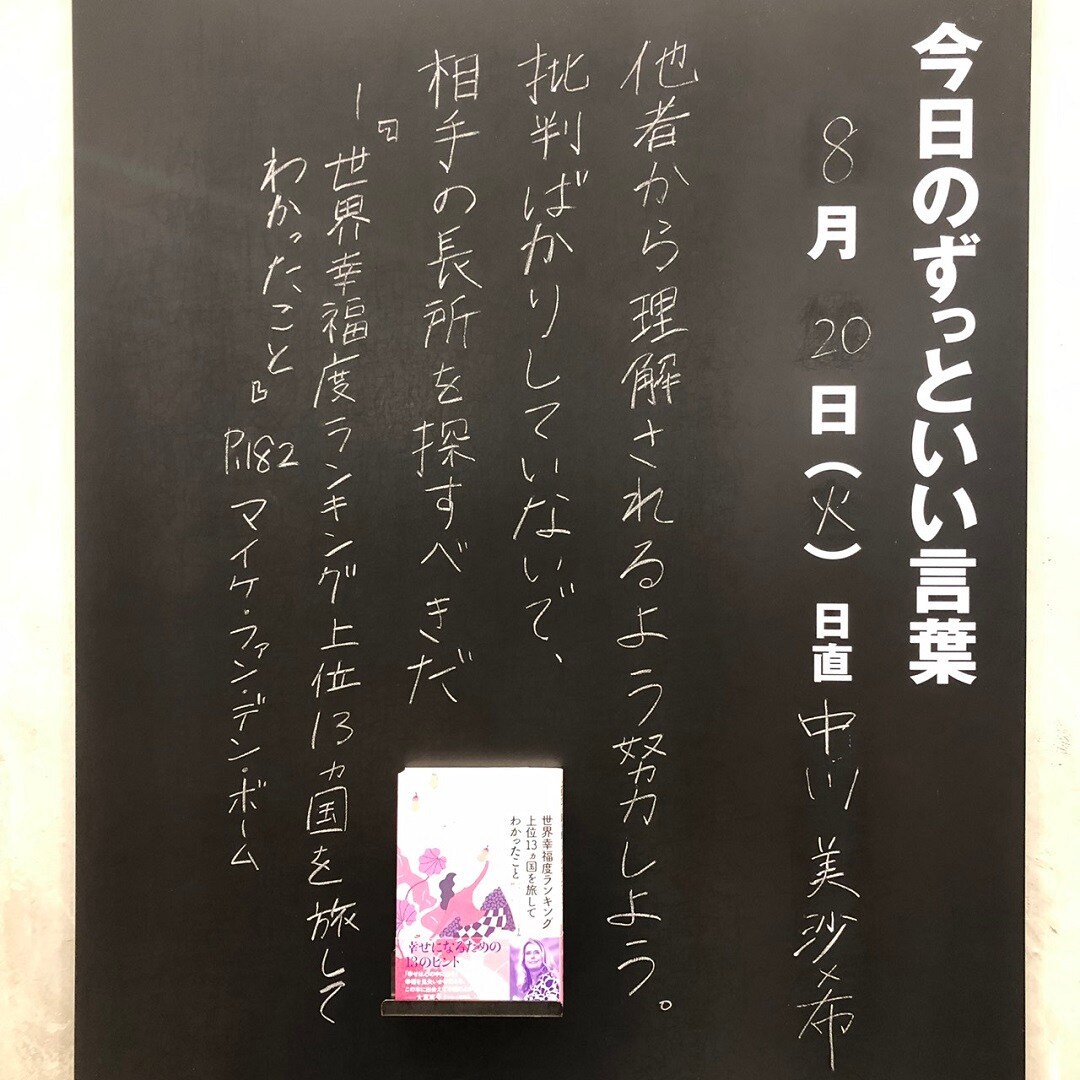 今日のずっといい言葉
8月20日(火) 日直 中川 美沙希
他者から理解されるよう努力しよう。
批判ばかりしていないで、
相手の長所を探すべきだ
―『世界幸福度ランキング上位13ヵ国を旅して
わかったこと』 P.182 マイケ・ファン・デン・ボーム
世界幸福度ランキング
上位13ヵ国を旅して
わかったこと
幸せになるための
13のヒント